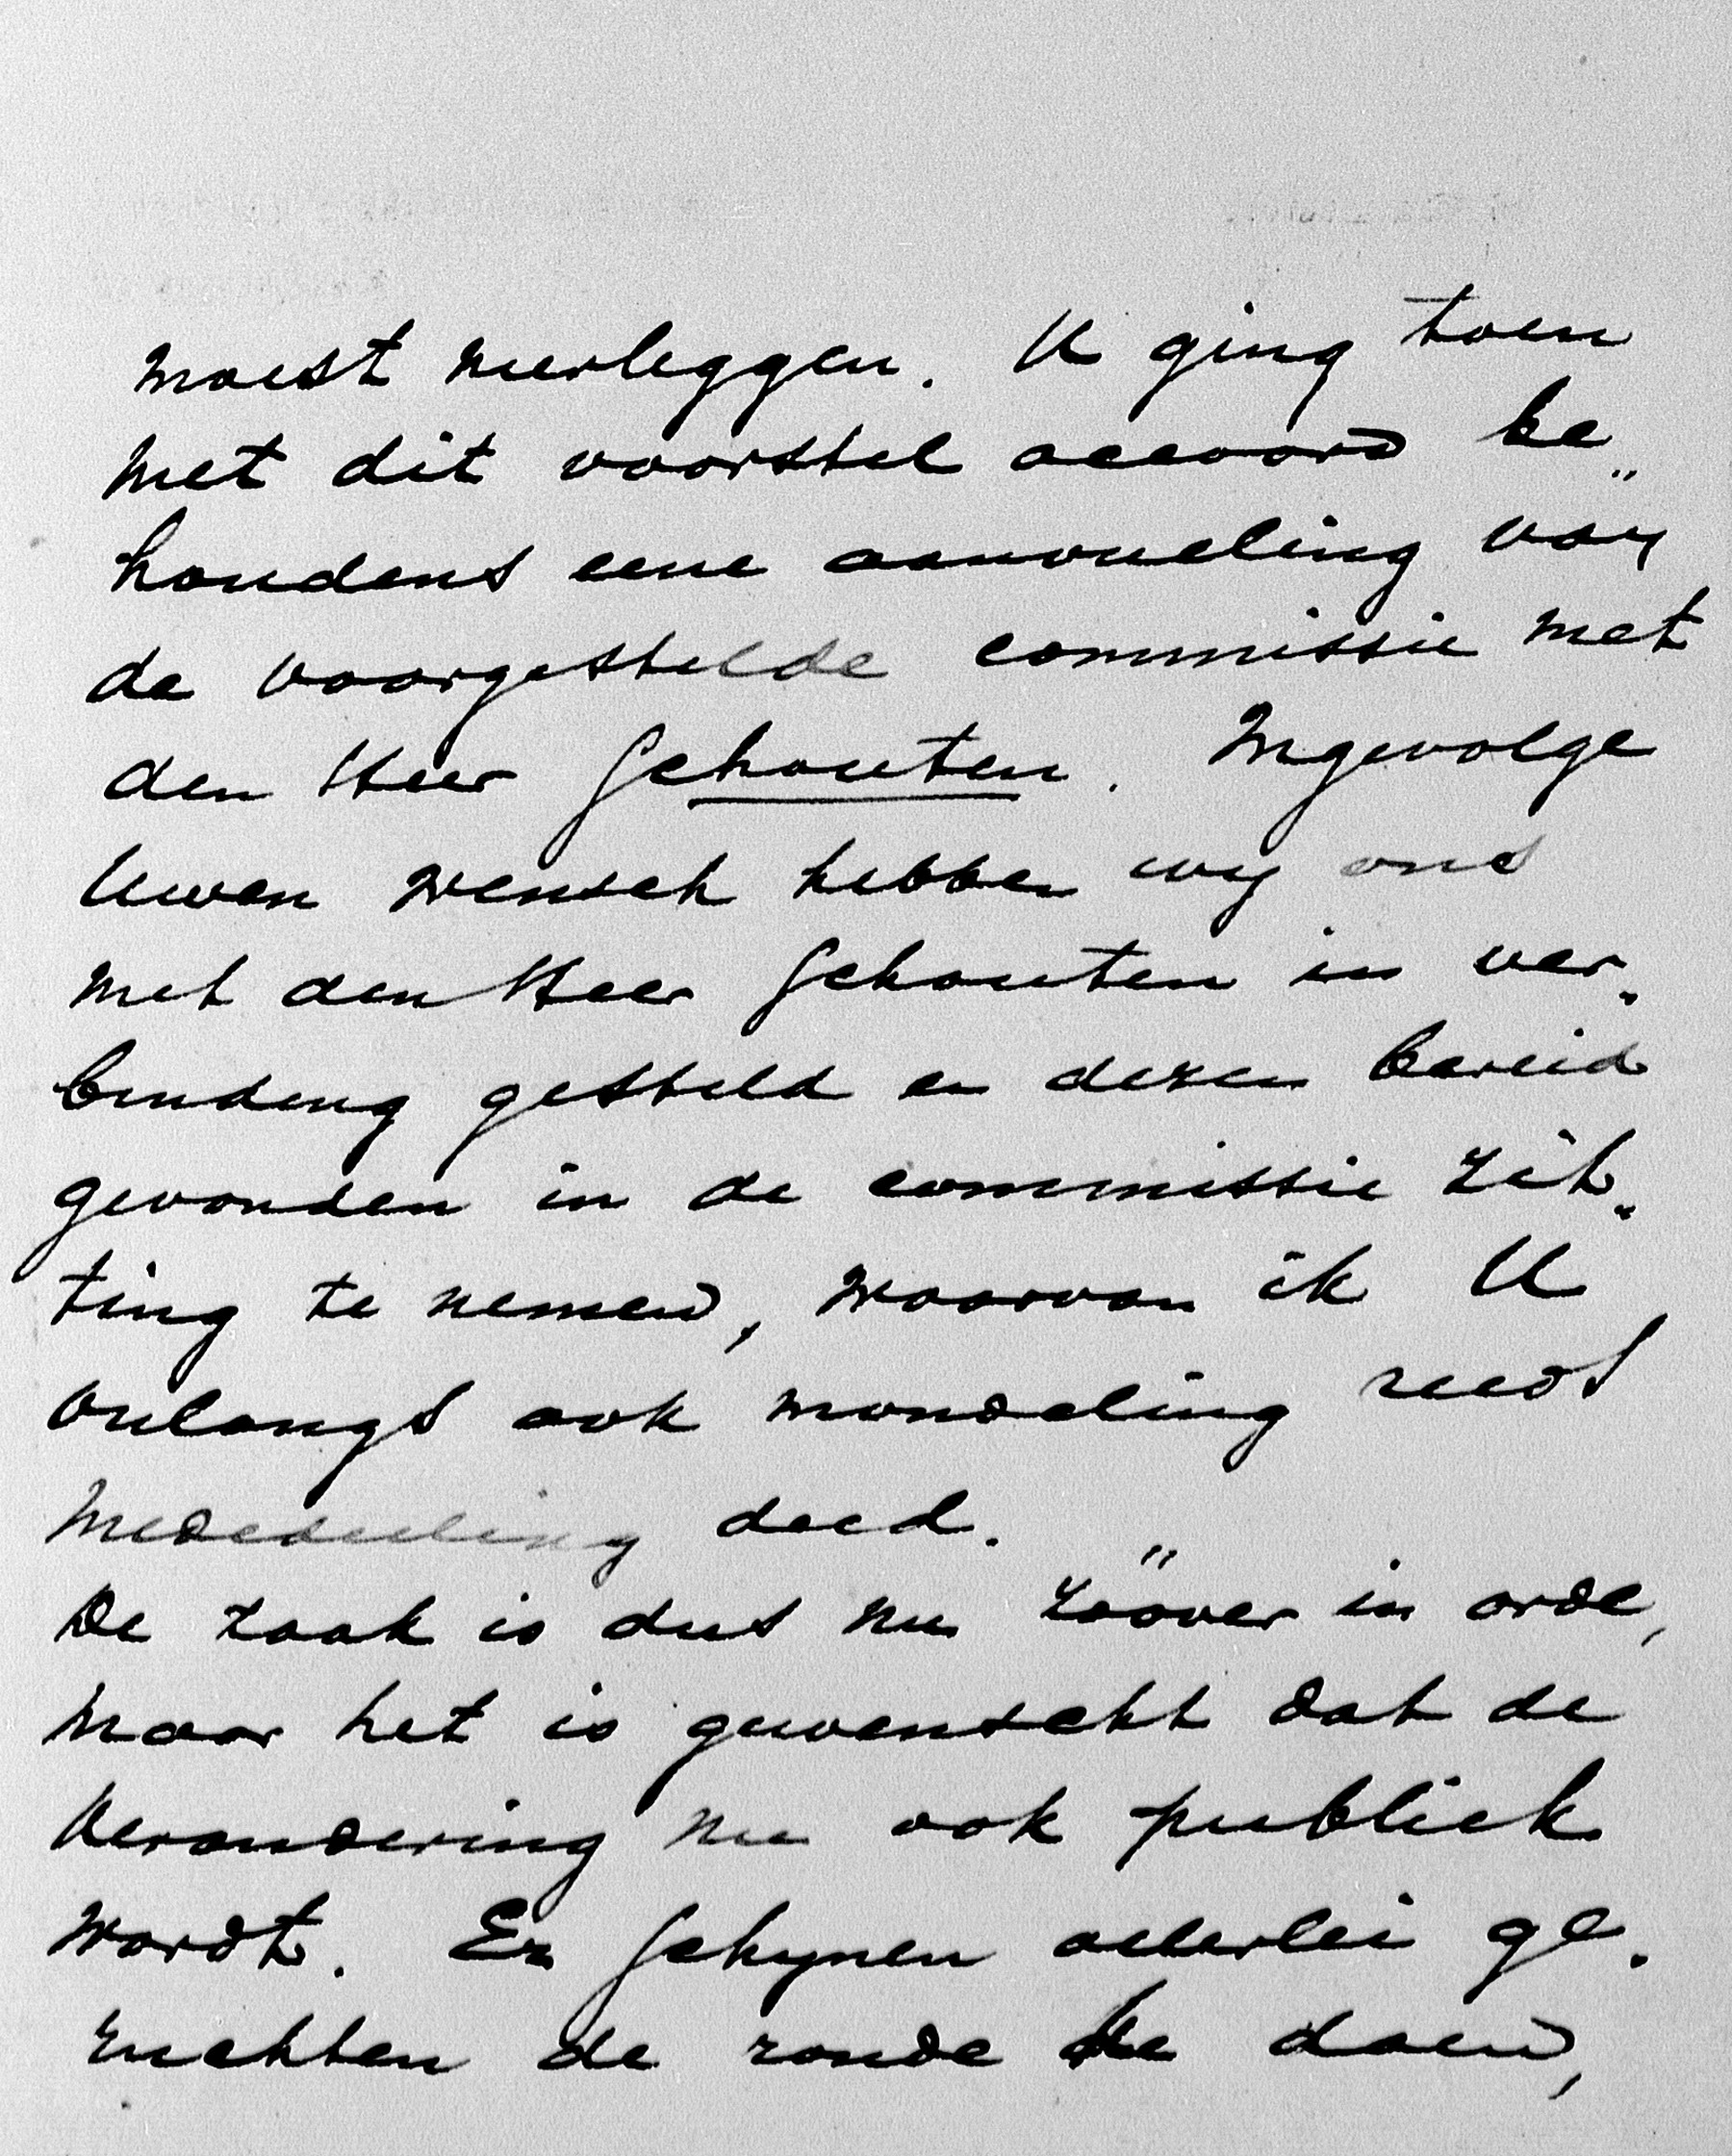 moest neerleggen. U ging toen
met dit voorstel accoord be„
houdens eene aanvulling van
de voorgestelde commissie met
den Heer Schouten. Ingevolge
Uwen wensch hebben wij ons
met den Heer Schouten in ver„
binding gesteld en dezen bereid
gevonden in de commissie zit„
ting te nemen, waarvan ik U
onlangs ook mondeling reeds
mededeeling deed.
De zaak is dus nu zoover in orde,
maar het is gewenscht dat de
verandering nu ook publiek
wordt. Er schijnen allerlei ge„
ruchten de ronde te doen,